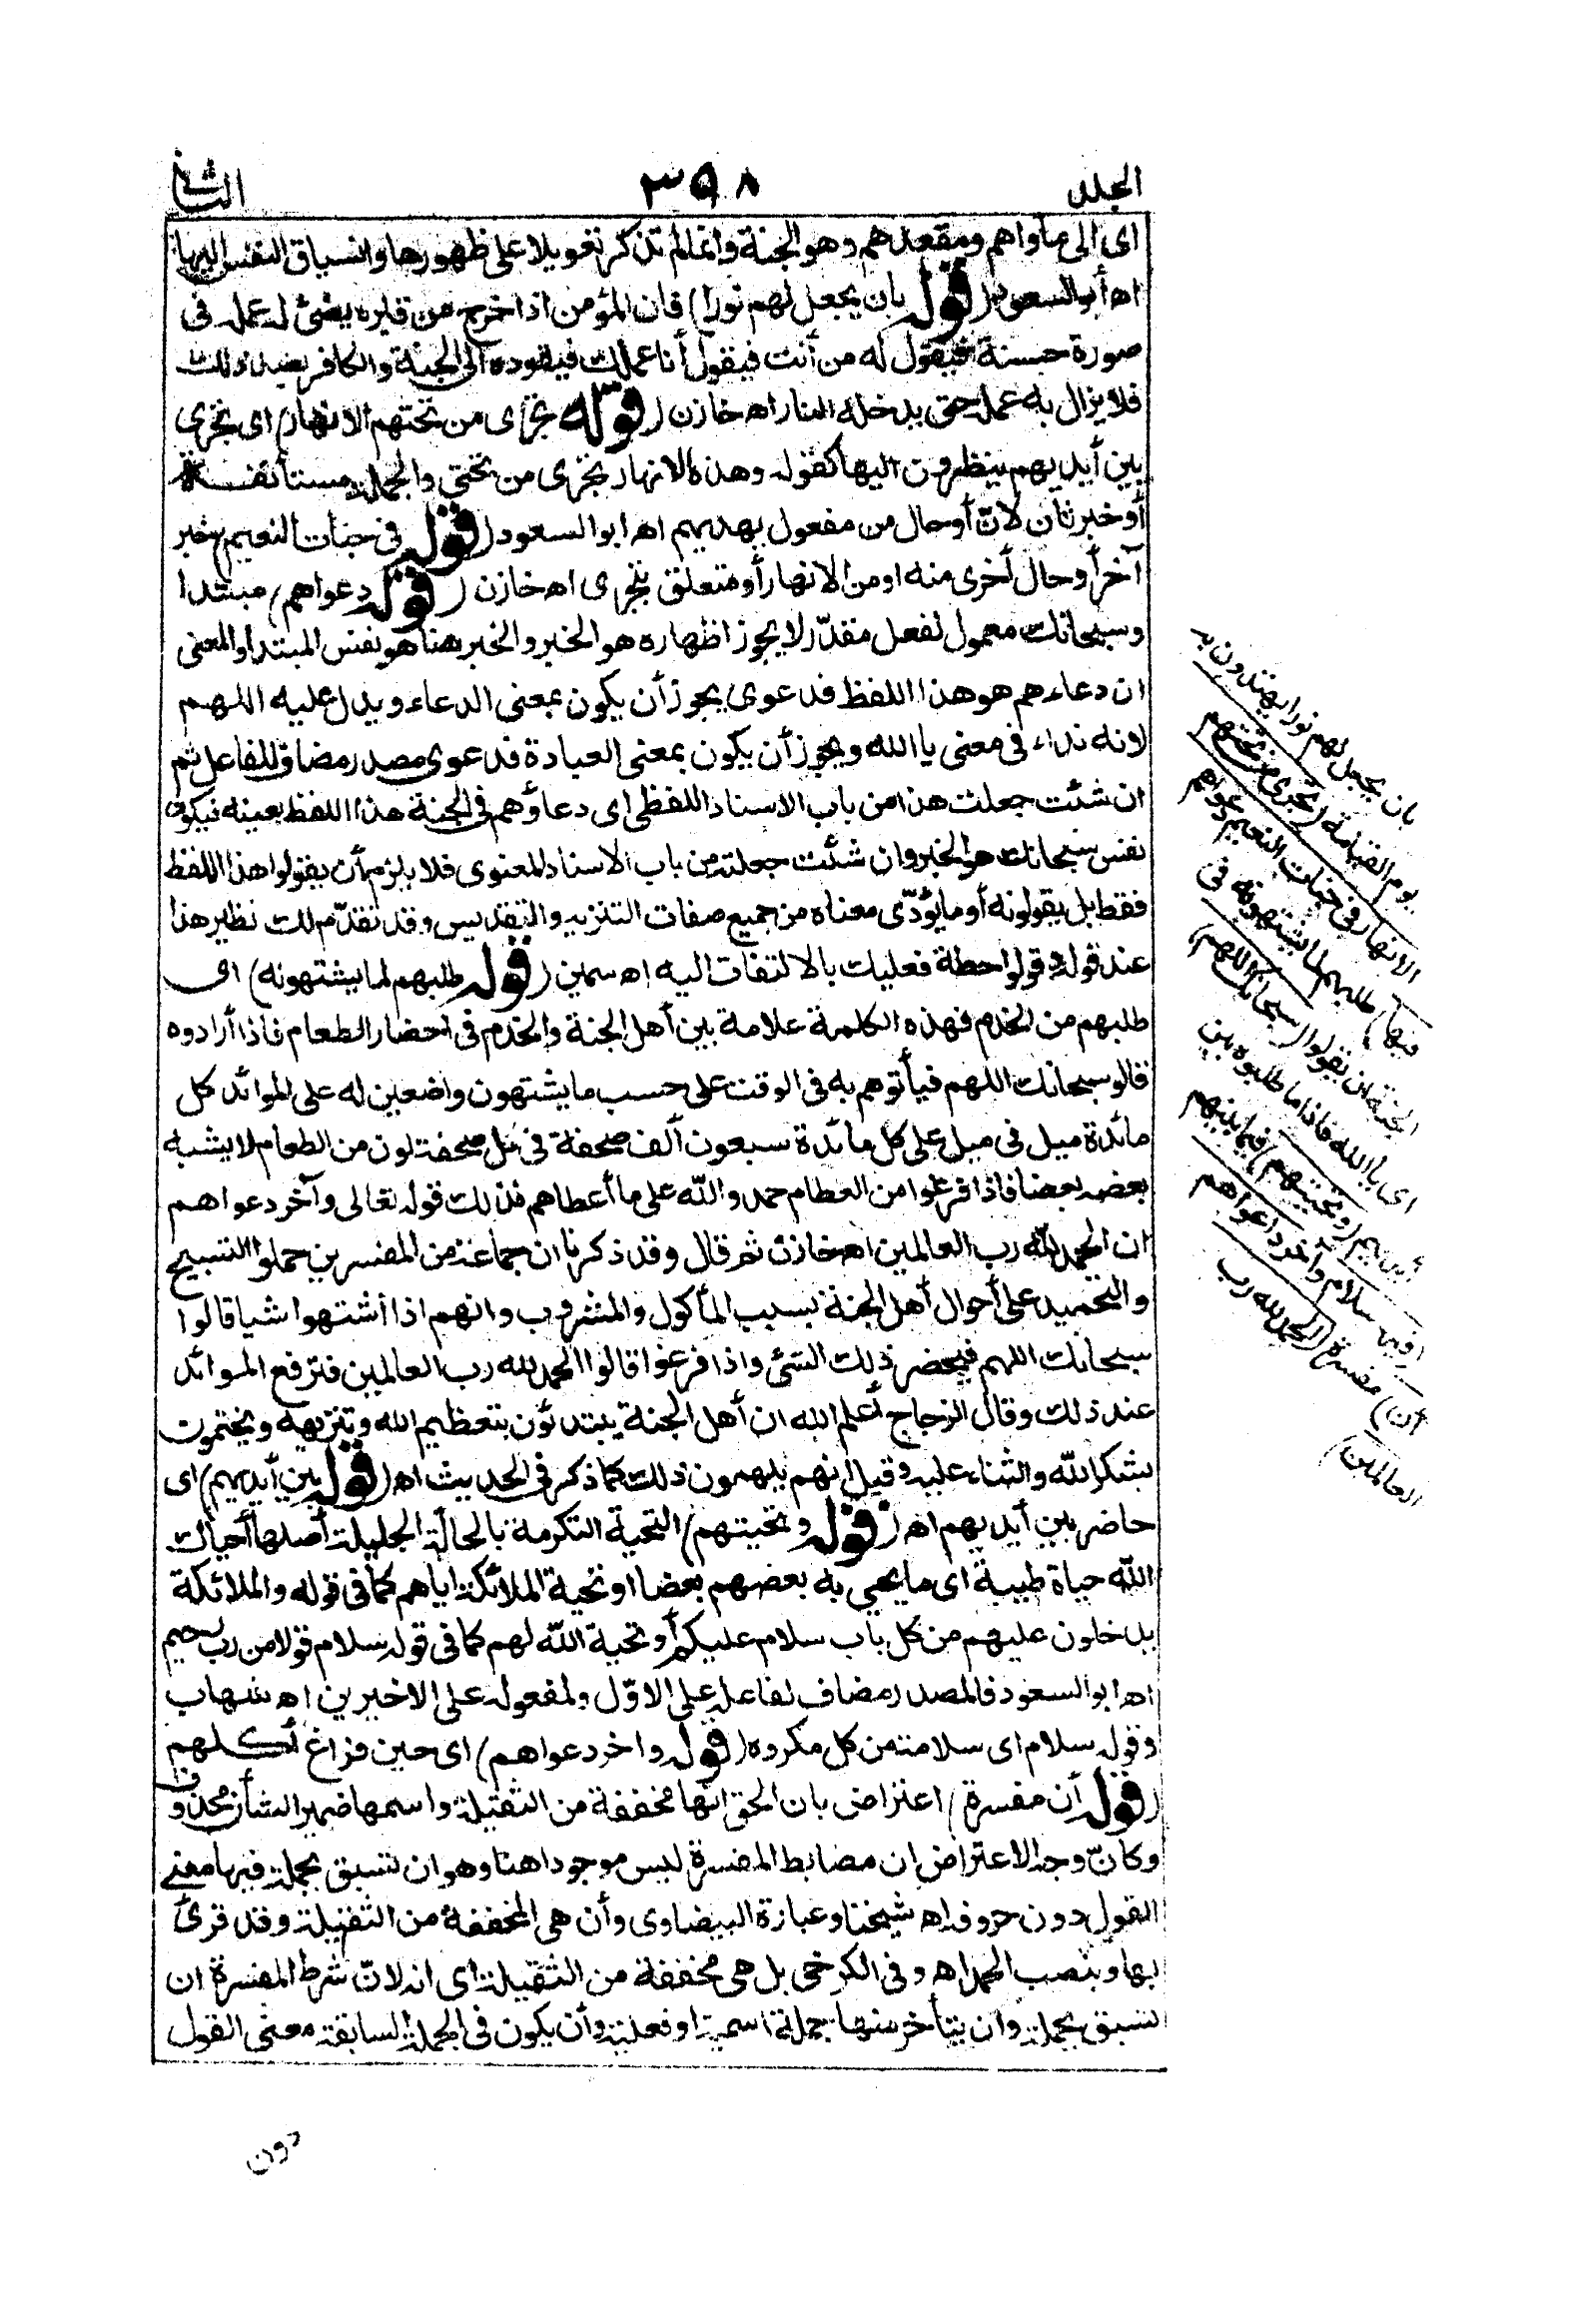 الجلد ٣٩٨ الثاني
اى الى مأواهم ومقعدهم وهو الجنة وانما لم تذكر تعويلا على ظهورها وانسياق النفس اليها
اه أبو السعود (قوله بان يجعل لهم نورا) فان المؤمن اذا خرج من قبره يضئ له عمله فى
صورة حسنة فيقول له من أنت فيقول أنا عملك فيقوده الى الجنة والكافر بضد ذلك
فلا يزال به عمله حتى يدخله النار اه خازن (قوله تجرى من تحتهم الانهار) اى تجرى
بين أيديهم ينظرون اليها كقوله وهذه الانهار تجرى من تحتى والجملة مستأنفة
أو خبر ثان لانّ أو حال من مفعول يهديهم اه ابو السعود (قوله فى جنات النعيم) خبر
آخر أو حال أخرى منه او من الانهار أو متعلق بتجرى اه خازن (قوله دعواهم) مبتدا
وسبحانك معمول لفعل مقدّر لا يجوز اظهاره هو الخبر والخبر هنا هو نفس المبتدا والمعنى
ان دعاءهم هو هذا اللفظ فدعوى يجوز أن يكون بمعنى الدعاء ويدل عليه اللهم
لانه نداء فى معنى يا الله ويجوز أن يكون بمعنى العبادة فدعوى مصدر مضاف للفاعل ثم
ان شئت جعلت هذا من باب الاسناد اللفظى اى دعاؤهم فى الجنة هذا اللفظ بعينه فيكون
نفس سبحانك هو الخبر وان شئت جعلته من باب الاسناد المعنوى فلا يلزم أن يقولوا هذا اللفظ
فقط بل يقولونه أو ما يؤدّى معناه من جميع صفات التنزيه والتقديس وقد تقدّم لك نظير هذا
عند قوله وقولوا حطة فعليك بالالتفات اليه اه سمين (قوله طلبهم لما يشتهونه) اى
طلبهم من الخدم فهذه الكلمة علامة بين أهل الجنة والخدم فى احضار الطعام فاذا أرادوه
قالوا سبحانك اللهم فيأتوهم به فى الوقت على حسب ما يشتهون واضعين له على الموائد كل
مائدة ميل فى ميل على كل مائدة سبعون ألف صحفة فى كل صحفة لون من الطعام لا يشبه
بعضه بعضا فاذا فرغوا من الطعام حمدوا الله على ما أعطاهم فذلك قوله تعالى وآخر دعواهم
ان الحمد لله رب العالمين اه خازن ثم قال وقد ذكرنا ان جماعة من المفسرين حملوا التسبيح
والتحميد على أحوال أهل الجنة بسبب المأكول والمشروب وانهم اذا اشتهوا شيا قالوا
سبحانك اللهم فيحضر ذلك الشئ واذا فرغوا قالوا الحمد لله رب العالمين فترفع الموائد
عند ذلك وقال الزجاج أعلم الله ان أهل الجنة يبتدئون بتعظيم الله وتنزيهه ويختمون
بشكر الله والثناء عليه وقيل انهم يلهمون ذلك كما ذكر فى الحديث اه (قوله بين أيديهم) اى
حاضر بين أيديهم اه (قوله وتحيتهم) التحية التكرمة بالحالة الجليلة أصلها أحياك
الله حياة طيبة اى ما يحيى به بعضهم بعضا او تحية الملائكة اياهم كما فى قوله والملائكة
يدخلون عليهم من كل باب سلام عليكم أو تحية الله لهم كما فى قوله سلام قولا من رب رحيم
اه ابو السعود فالمصدر مضاف لفاعله على الاوّل ولمفعوله على الاخيرين اه شهاب
وقوله سلام اى سلامة من كل مكروه (قوله واخر دعواهم) اى حين فراغ أكلهم
(قوله أن مفسرة) اعتراض بان الحق انها مخففة من الثقيلة واسمها ضمير الشأن محذوف
وكانّ وجه الاعتراض ان ضابط المفسرة ليس موجودا هنا وهو ان تسبق بجملة فيها معنى
القول دون حروفه اه شيخنا وعبارة البيضاوى وأن هى المخففة من الثقيلة وقد قرئ
بها وبنصب الحمد اه وفى الكرخى بل هى مخففة من الثقيلة اى انه لانّ شرط المفسرة ان
تسبق بجملة وان يتأخر عنها جملة اسمية او فعلية وأن يكون فى الجملة السابقة معنى القول
دون
بان يجعل لهم نورا يهتدون به
يوم القيامة (تجرى من تحتهم
الانهار فى جنات النعيم دعواهم
فيها) طلبهم لما يشتهونه فى
الجنة ان يقولوا (سبحانك اللهم)
اى يا الله فاذا ما طلبوه بين
أيديهم (وتحيتهم) فيما بينهم
(فيها سلام وآخر دعواهم
أن) مفسرة (الحمد لله رب
العالمين)